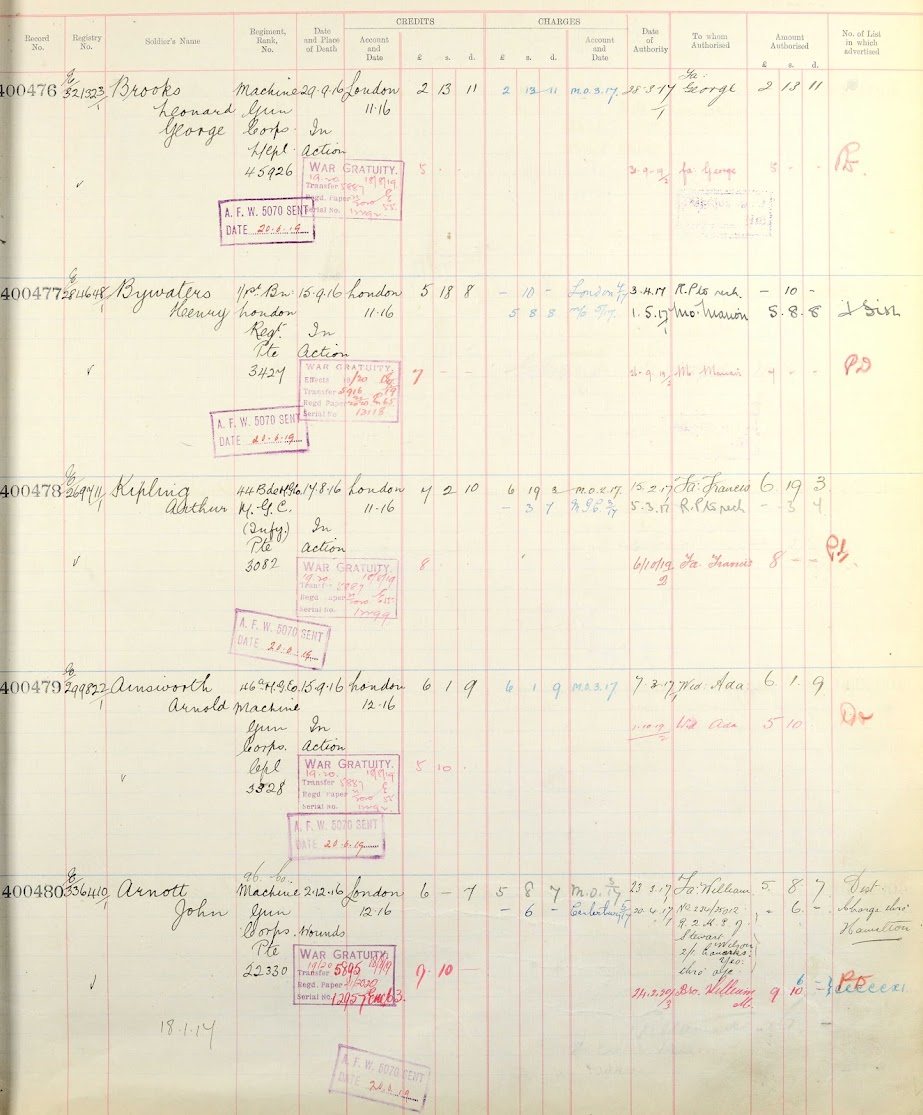 CREDITS CHARGES
Record No. Registry No. Soldier's Name Regiment, Rank, No. Date and Place of Death Account and Date £ s. d. £ s. d. Account and Date Date of Authority To whom Authorised Amount Authorised £ s. d. No. of List in which advertised
400476 E/321323/1 Brooks Machine 29.9.16 London 2 13 11 2 13 11 M.O.3.17. 28.3.17 Fa: George 2 13 11
Leonard Gun 11.16
George Corps. In
L/Cpl Action
45926 WAR GRATUITY. 5 3.9.19 fa George 5 - - Pd.
19.20. 18/8/19
Transfer 5887
Regd. Paper
Serial No.
A. F. W. 5070 SENT
DATE 20.6.19
400477 E/284648/1 Bywaters 1/1st Bn. 15.9.16 London 5 18 8 - 10 - London 3.4.17 R.Pts rech. - 10 -
Henry London 11.16 5 8 8 1.5.17 Mo. Marion 5.8.8 & Sisr
Regt. In
Pte Action
3427 WAR GRATUITY. 7 - - Mo Marion 7 - - PD
Effects 19/20
Transfer 5916
Regd Paper
Serial No.
A. F. W. 5070 SENT
DATE 20.6.19
400478 E/269711/1 Kipling 44 Bde M.G.Co. 17.8.16 London 7 2 10 6 19 3 M.O.2.17. 15.2.17 Fa: Francis 6 19 3
Arthur M.G.C. 11.16 - 3 7 5.3.17 R.Pts rech - 3 7
(Infy.) In
Pte action
3082 WAR GRATUITY. 8 6/10/19 Fa. Francis 8 - - Pd.
19.20. 18/8/19
Transfer 5887
Regd. Paper
Serial No.
A. F. W. 5070 SENT
DATE 20.6.19.
400479 E/299822/1 Ainsworth 46th M.G.Co. 15.9.16 London 6 1 9 6 1 9 M.O.3.17 7.3.17 Wid: Ada 6. 1. 9
Arnold Machine 12.16
Gun In 1.10.19 Wid Ada 5 10
Corps. Action
Cpl WAR GRATUITY. 5 10
3328 19.20. 18/8/19
Transfer 5887
Regd. Paper
Serial No.
A. F. W. 5070 SENT
DATE 20.6.19
96. Co.
400480 E/336410/1 Arnott Machine 2.12.16 London 6 - 7 5 8 7 M.O. 23.3.17 Fa: William 5. 8 7 Dist.
John Gun 12.16 - 6 - Canterbury 20.4.17 - 6. - Charge thro'
Corps. Wounds Hamilton
Pte Stewart
22330 WAR GRATUITY. 9. 10 - 24.2.20 Bro. William 9 10
19/20
Transfer 5895
Regd. Paper
Serial No. 12957
18.1.17
A. F. W. 5070 SENT
DATE